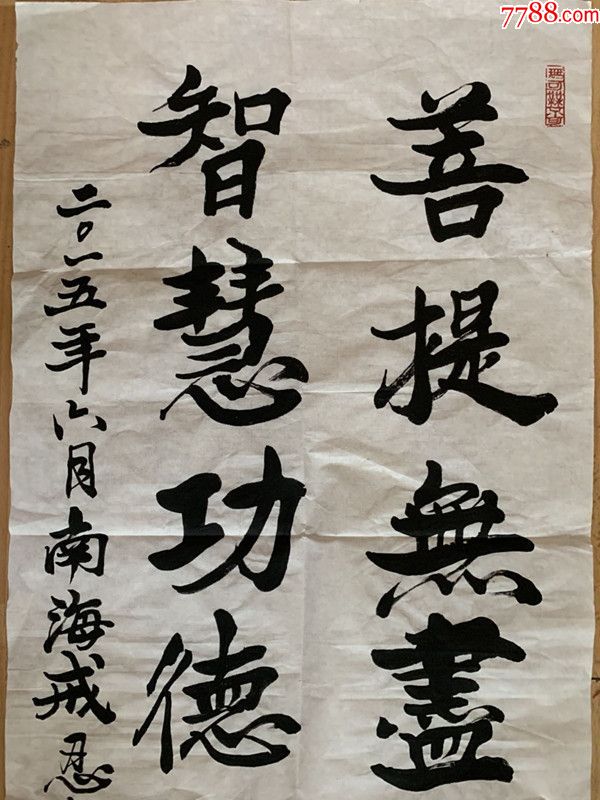 7788.com
菩提無盡
智慧功德
二〇一五年六月南海戒忍